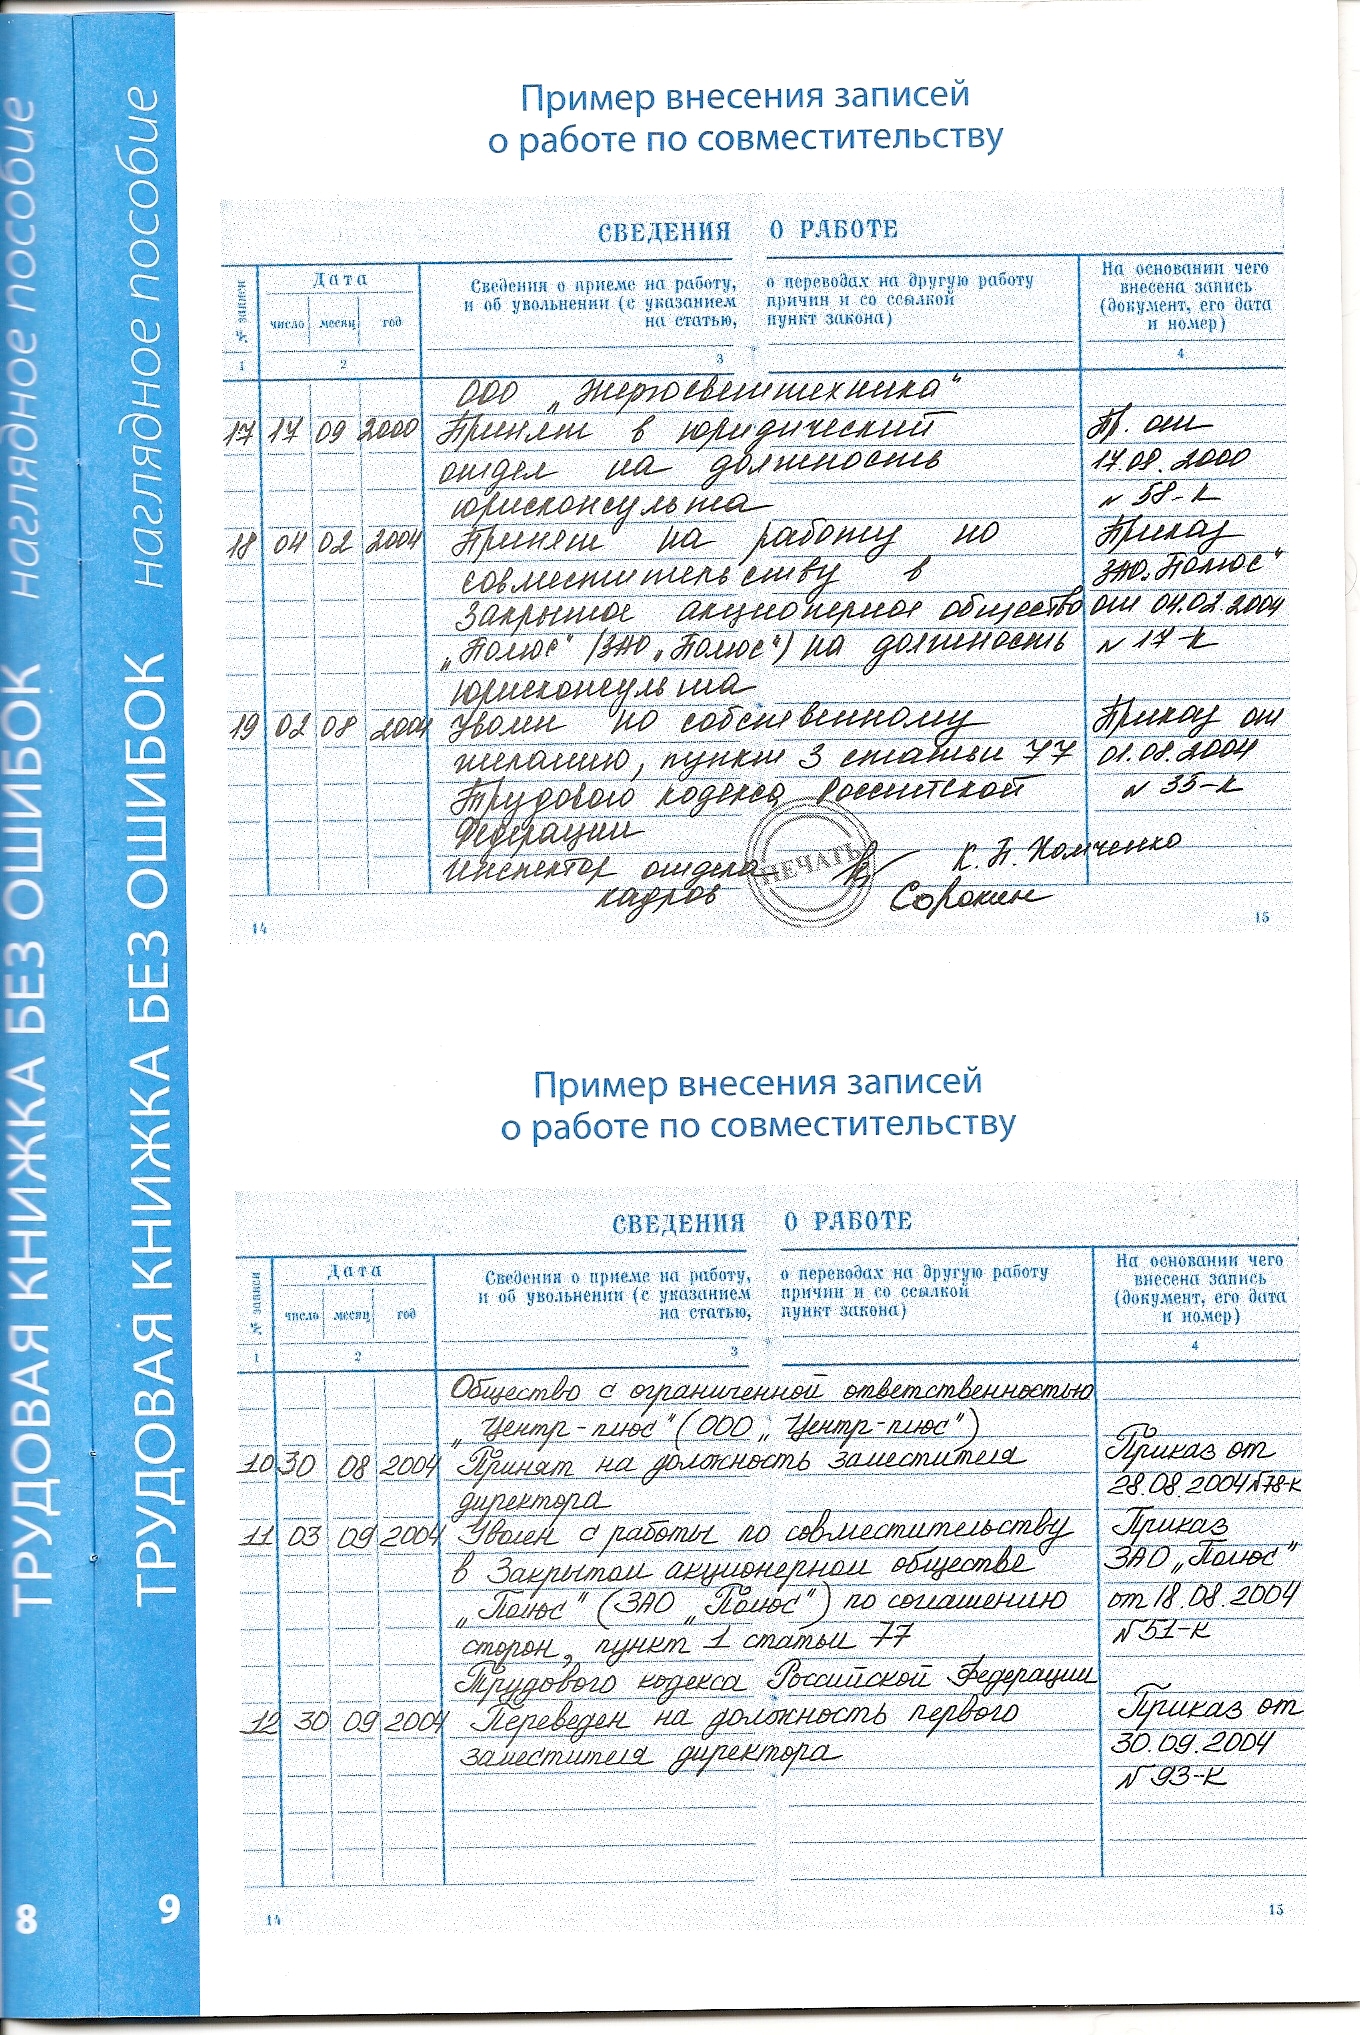 ТРУДОВАЯ КНИЖКА БЕЗ ОШИБОК наглядное пособие
8
ТРУДОВАЯ КНИЖКА БЕЗ ОШИБОК наглядное пособие
9
Пример внесения записей
о работе по совместительству
СВЕДЕНИЯ О РАБОТЕ
№ записи
Дата
число месяц год
Сведения о приеме на работу, о переводах на другую работу
и об увольнении (с указанием причин и со ссылкой
на статью, пункт закона)
На основании чего
внесена запись
(документ, его дата
и номер)
1 2 3 4
ООО „Энергосветтехника“
17 17 09 2000 Принят в юридический Пр. от
отдел на должность 17.08.2000
юрисконсульта № 58-к
18 04 02 2004 Принят на работу по Приказ
совместительству в ЗАО „Полюс“
Закрытое акционерное общество от 04.02.2004
„Полюс“ (ЗАО „Полюс“) на должность № 17-к
юрисконсульта
19 02 08 2004 Уволен по собственному Приказ от
желанию, пункт 3 статьи 77 01.08.2004
Трудового кодекса Российской № 35-к
Федерации
Инспектор отдела ПЕЧАТЬ К. П. Хомченко
кадров Сорокин
14 15
Пример внесения записей
о работе по совместительству
СВЕДЕНИЯ О РАБОТЕ
№ записи
Дата
число месяц год
Сведения о приеме на работу, о переводах на другую работу
и об увольнении (с указанием причин и со ссылкой
на статью, пункт закона)
На основании чего
внесена запись
(документ, его дата
и номер)
1 2 3 4
Общество с ограниченной ответственностью
„Центр-плюс“ (ООО „Центр-плюс“)
10 30 08 2004 Принят на должность заместителя Приказ от
директора 28.08.2004 №78-к
11 03 09 2004 Уволен с работы по совместительству Приказ
в Закрытом акционерном обществе ЗАО „Полюс“
„Полюс“ (ЗАО „Полюс“) по соглашению от 18.08.2004
сторон, пункт 1 статьи 77 №51-к
Трудового кодекса Российской Федерации
12 30 09 2004 Переведен на должность первого Приказ от
заместителя директора 30.09.2004
№ 93-к
14 15